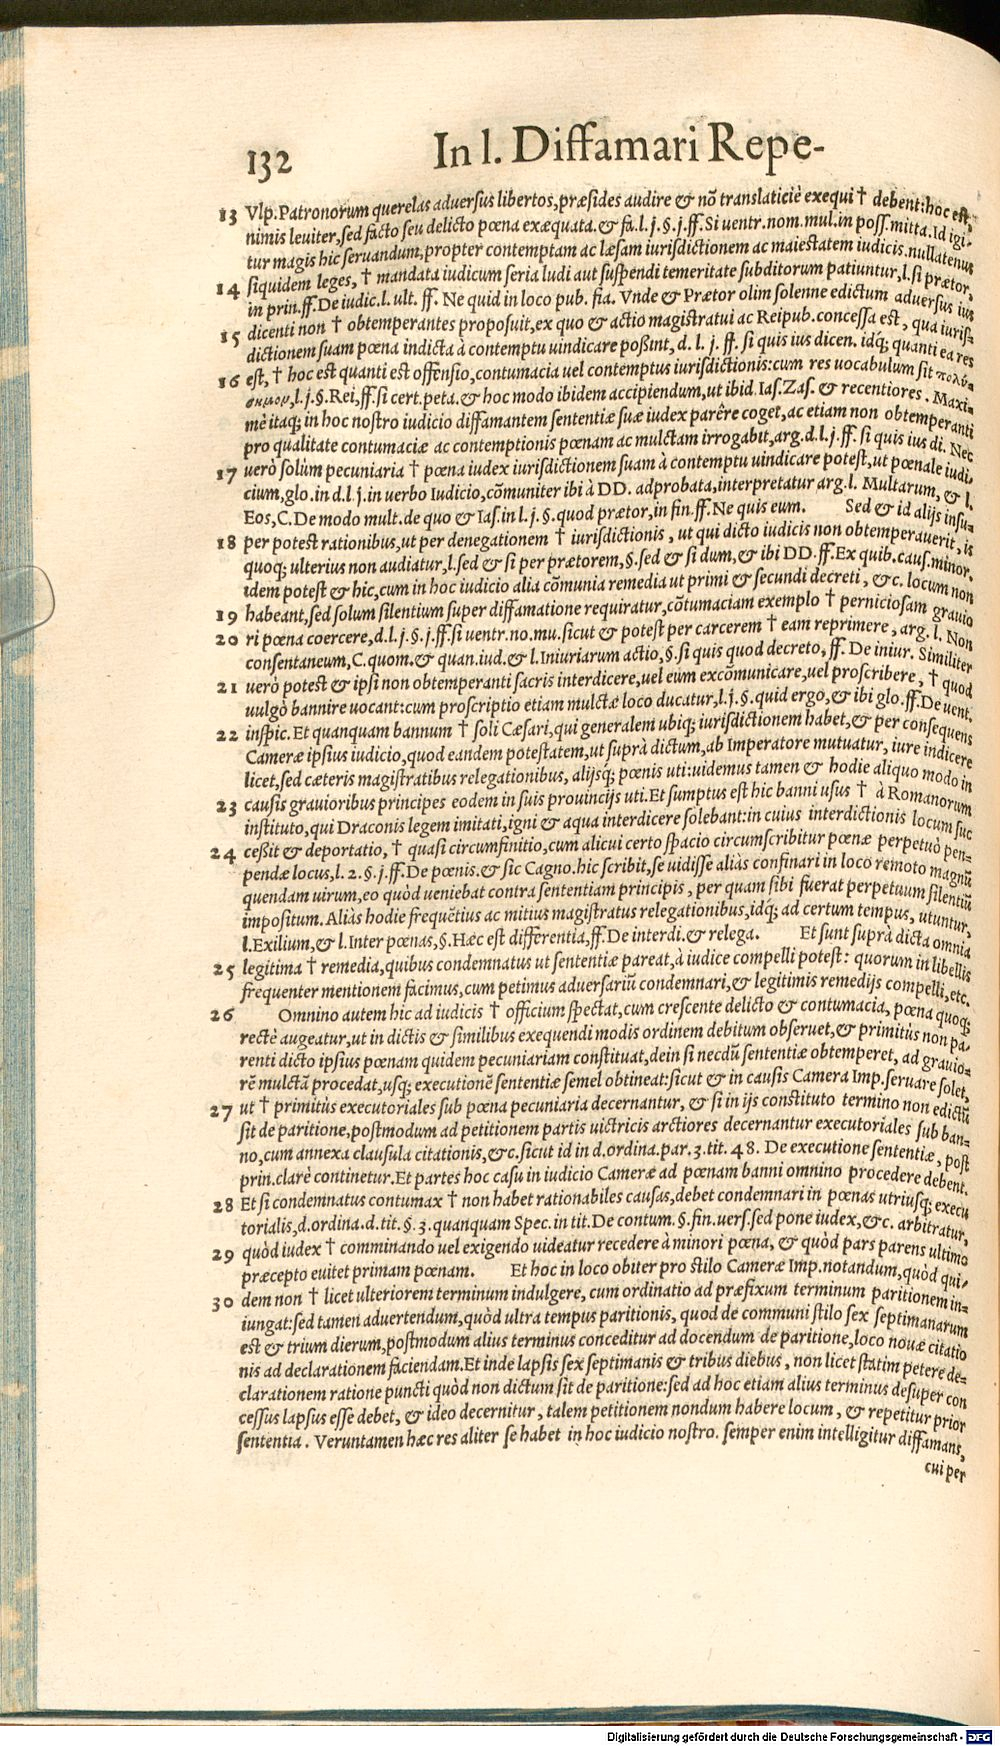 132 In l. Diffamari Repe-
13 Vlp. Patronorum querelas aduersus libertos, præsides audire & nõ translaticiè exequi † debent: hoc est,
nimis leuiter, sed facto seu delicto pœna exæquata. & fa. l. j. §. j. ff. Si uentr. nom. mul. in poss. mitta. Id igi-
tur magis hic seruandum, propter contemptam ac læsam iurisdictionem ac maiestatem iudicis. nullatenus
14 siquidem leges, † mandata iudicum seria ludi aut suspendi temeritate subditorum patiuntur, l. si prætor,
in prin. ff. De iudic. l. ult. ff. Ne quid in loco pub. fia. Vnde & Prætor olim solenne edictum aduersus ius
15 dicenti non † obtemperantes proposuit, ex quo & actio magistratui ac Reipub. concessa est, qua iuris-
dictionem suam pœna indicta à contemptu uindicare poßint, d. l. j. ff. si quis ius dicen. idq; quanti ea res
16 est, † hoc est quanti est offensio, contumacia uel contemptus iurisdictionis: cum res uocabulum sit πολύ-
σημον, l. j. §. Rei, ff. si cert. peta. & hoc modo ibidem accipiendum, ut ibid. Ias. Zas. & recentiores. Maxi-
mè itaq; in hoc nostro iudicio diffamantem sententiæ suæ iudex parêre coget, ac etiam non obtemperanti
pro qualitate contumaciæ ac contemptionis pœnam ac mulctam irrogabit, arg. d. l. j. ff. si quis ius di. Nec
17 uerò solùm pecuniaria † pœna iudex iurisdictionem suam à contemptu uindicare potest, ut pœnale iudi-
cium, glo. in d. l. j. in uerbo Iudicio, cõmuniter ibi à DD. adprobata, interpretatur arg. l. Multarum, & l.
Eos, C. De modo mult. de quo & Ias. in l. j. §. quod prætor, in fin. ff. Ne quis eum. Sed & id alijs insu-
18 per potest rationibus, ut per denegationem † iurisdictionis, ut qui dicto iudicis non obtemperauerit, is
quoq; ulterius non audiatur, l. sed & si per prætorem, §. sed & si dum, & ibi DD. ff. Ex quib. caus. minor.
idem potest & hic, cum in hoc iudicio alia cõmunia remedia ut primi & secundi decreti, &c. locum non
19 habeant, sed solum silentium super diffamatione requiratur, cõtumaciam exemplo † perniciosam grauio
20 ri pœna coercere, d. l. j. §. j. ff. si uentr. no. mu. sicut & potest per carcerem † eam reprimere, arg. l. Non
consentaneum, C. quom. & quan. iud. & l. Iniuriarum actio, §. si quis quod decreto, ff. De iniur. Similiter
21 uerò potest & ipsi non obtemperanti sacris interdicere, uel eum excõmunicare, uel proscribere, † quod
uulgò bannire uocant: cum proscriptio etiam mulctæ loco ducatur, l. j. §. quid ergo, & ibi glo. ff. De uent.
22 inspic. Et quanquam bannum † soli Cæsari, qui generalem ubiq; iurisdictionem habet, & per consequens
Cameræ ipsius iudicio, quod eandem potestatem, ut suprà dictum, ab Imperatore mutuatur, iure indicere
licet, sed cæteris magistratibus relegationibus, alijsq; pœnis uti: uidemus tamen & hodie aliquo modo in
23 causis grauioribus principes eodem in suis prouincijs uti. Et sumptus est hic banni usus † à Romanorum
instituto, qui Draconis legem imitati, igni & aqua interdicere solebant: in cuius interdictionis locum suc
24 ceßit & deportatio, † quasi circumfinitio, cum alicui certo spacio circumscribitur pœnæ perpetuò pen-
pendæ locus, l. 2. §. j. ff. De pœnis. & sic Cagno. hic scribit, se uidisse aliàs confinari in loco remoto magnũ
quendam uirum, eo quòd ueniebat contra sententiam principis, per quam sibi fuerat perpetuum silentiũ
impositum. Aliàs hodie frequẽtius ac mitius magistratus relegationibus, idq; ad certum tempus, utuntur,
l. Exilium, & l. Inter pœnas, §. Hæc est differentia, ff. De interdi. & relega. Et sunt suprà dicta omnia
25 legitima † remedia, quibus condemnatus ut sententiæ pareat, à iudice compelli potest: quorum in libellis
frequenter mentionem facimus, cum petimus aduersariũ condemnari, & legitimis remedijs compelli, etc.
26 Omnino autem hic ad iudicis † officium spectat, cum crescente delicto & contumacia, pœna quoq;
rectè augeatur, ut in dictis & similibus exequendi modis ordinem debitum obseruet, & primitùs non pa-
renti dicto ipsius pœnam quidem pecuniariam constituat, dein si necdũ sententiæ obtemperet, ad grauio-
rẽ mulctã procedat, usq; executionẽ sententiæ semel obtineat: sicut & in causis Camera Imp. seruare solet,
27 ut † primitùs executoriales sub pœna pecuniaria decernantur, & si in ijs constituto termino non edictũ
sit de paritione, postmodum ad petitionem partis uictricis arctiores decernantur executoriales sub ban-
no, cum annexa clausula citationis, &c. sicut id in d. ordina. par. 3. tit. 48. De executione sententiæ, post
prin. clarè continetur. Et partes hoc casu in iudicio Cameræ ad pœnam banni omnino procedere debent.
28 Et si condemnatus contumax † non habet rationabiles causas, debet condemnari in pœnas utriusq; execu
torialis, d. ordina. d. tit. §. 3. quanquam Spec. in tit. De contum. §. fin. uers. sed pone iudex, &c. arbitratur,
29 quòd iudex † comminando uel exigendo uideatur recedere à minori pœna, & quòd pars parens ultimo
præcepto euitet primam pœnam. Et hoc in loco obiter pro stilo Cameræ Imp. notandum, quòd qui-
30 dem non † licet ulteriorem terminum indulgere, cum ordinatio ad præfixum terminum paritionem in-
iungat: sed tamen aduertendum, quòd ultra tempus paritionis, quod de communi stilo sex septimanarum
est & trium dierum, postmodum alius terminus conceditur ad docendum de paritione, loco nouæ citatio
nis ad declarationem faciendam. Et inde lapsis sex septimanis & tribus diebus, non licet statim petere de-
clarationem ratione puncti quòd non dictum sit de paritione: sed ad hoc etiam alius terminus desuper con
cessus lapsus esse debet, & ideo decernitur, talem petitionem nondum habere locum, & repetitur prior
sententia. Veruntamen hæc res aliter se habet in hoc iudicio nostro. semper enim intelligitur diffamans,
cui per
Digitalisierung gefördert durch die Deutsche Forschungsgemeinschaft - DFG